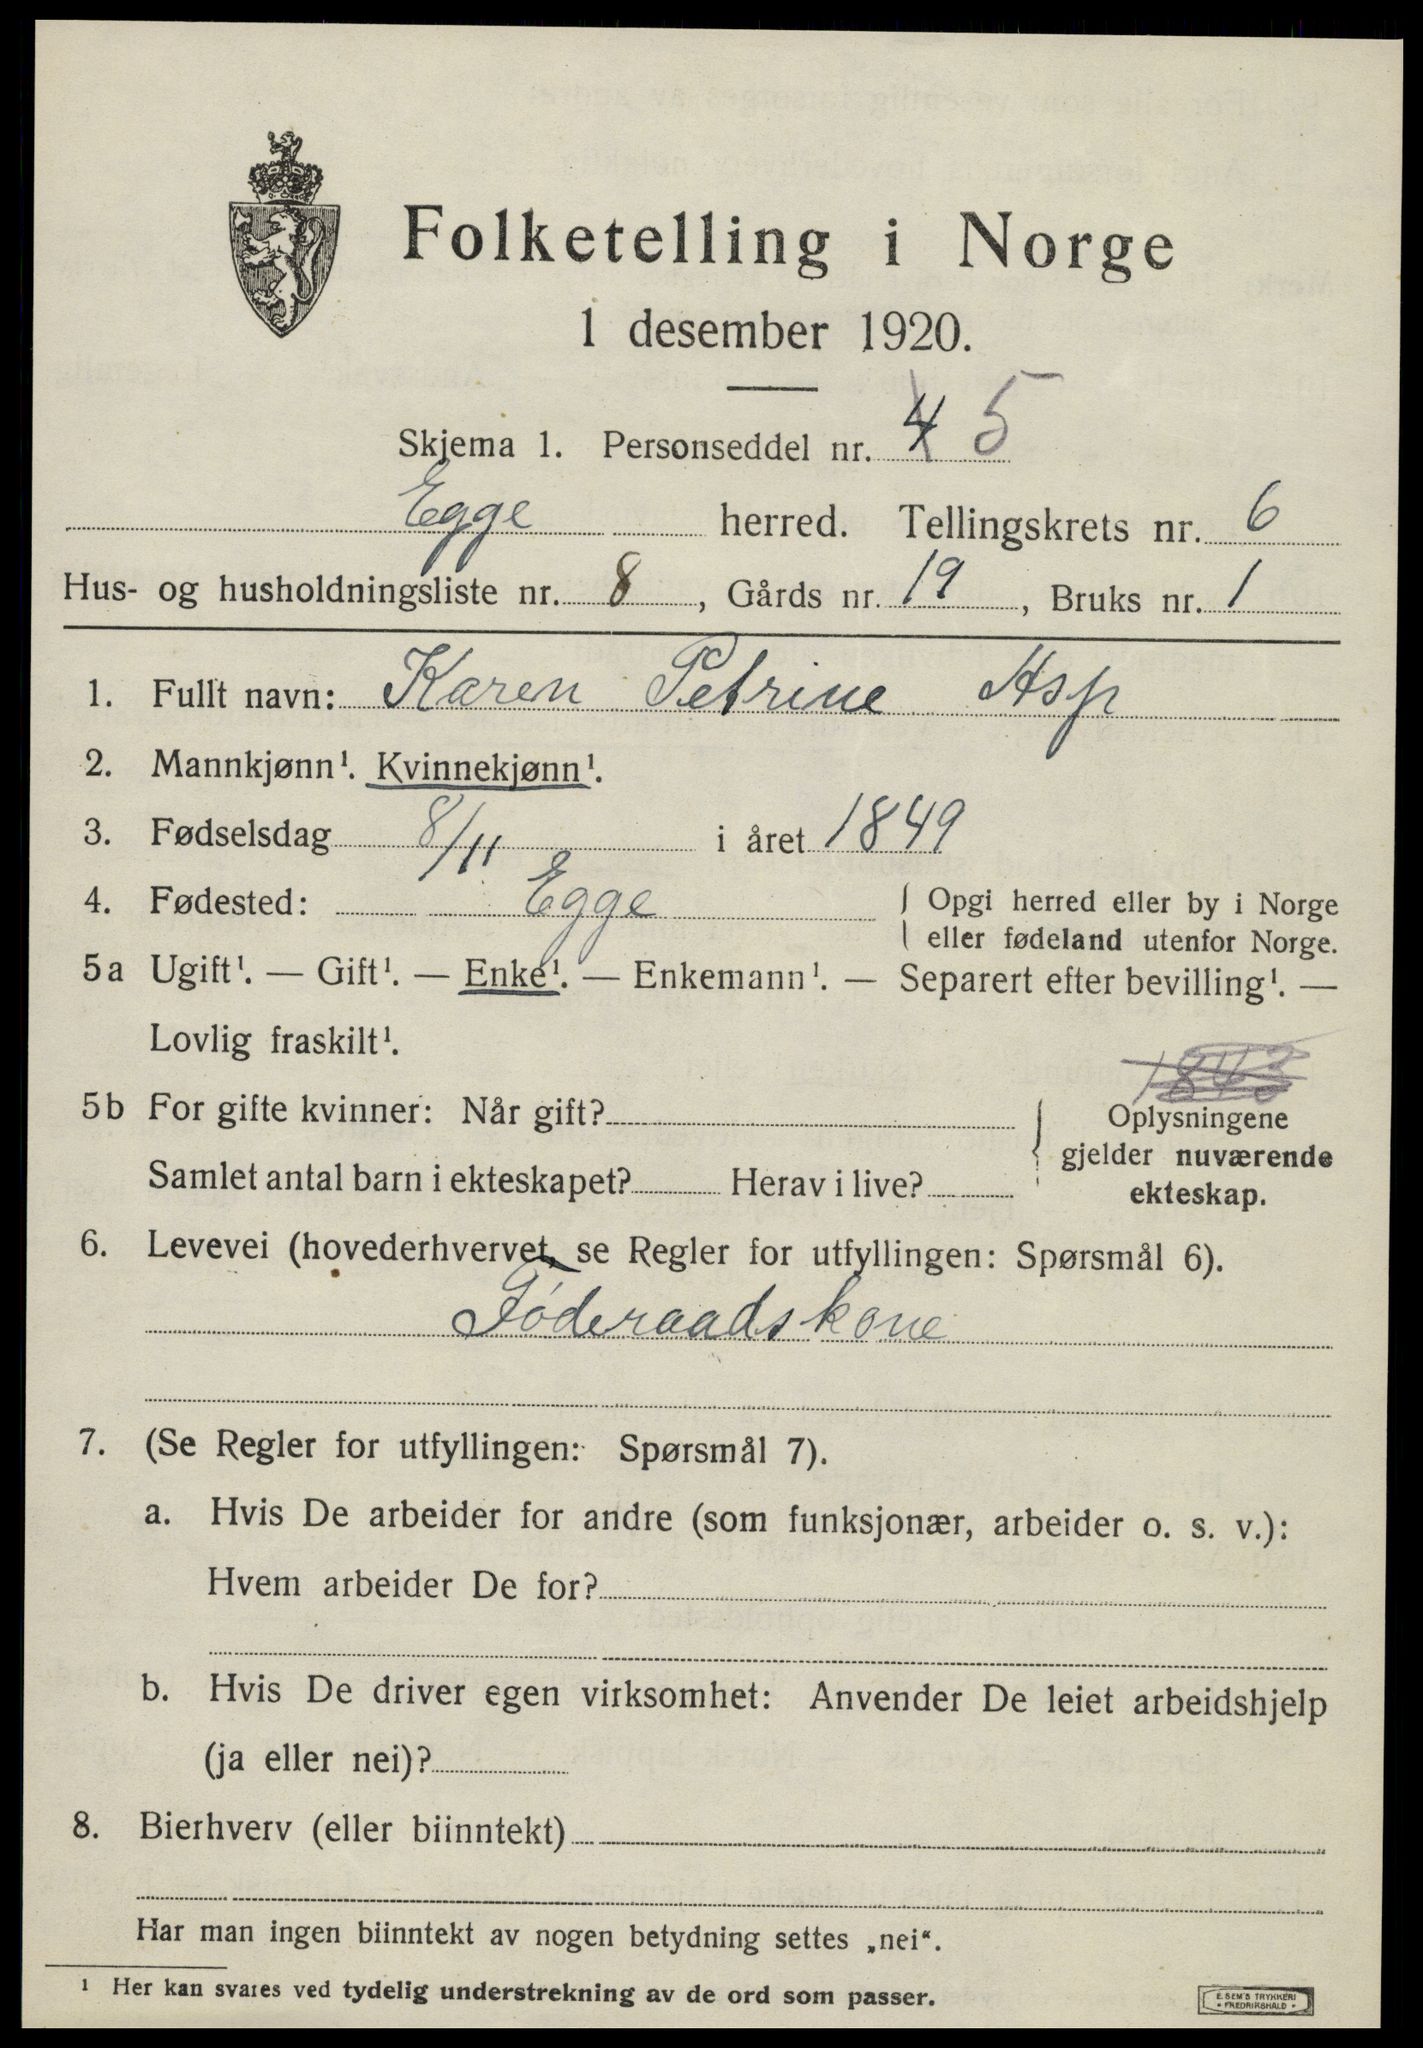 Folketelling i Norge
1 desember 1920.
Skjema 1. Personseddel nr. 4 5
Egge herred. Tellingskrets nr. 6
Hus- og husholdningsliste nr. 8, Gårds nr. 19, Bruks nr. 1
1. Fullt navn: Karen Petrine Asp
2. Mannkjønn¹. Kvinnekjønn¹.
3. Fødselsdag 8/11 i året 1849
4. Fødested: Egge { Opgi herred eller by i Norge
eller fødeland utenfor Norge.
5a Ugift¹. — Gift¹. — Enke¹. — Enkemann¹. — Separert efter bevilling¹. —
Lovlig fraskilt¹.
5b For gifte kvinner: Når gift?
Samlet antal barn i ekteskapet? Herav i live?
{ Oplysningene
gjelder nuværende
ekteskap.
6. Levevei (hovederhvervet, se Regler for utfyllingen: Spørsmål 6).
Føderaadskone
7. (Se Regler for utfyllingen: Spørsmål 7).
a. Hvis De arbeider for andre (som funksjonær, arbeider o. s. v.):
Hvem arbeider De for?
b. Hvis De driver egen virksomhet: Anvender De leiet arbeidshjelp
(ja eller nei)?
8. Bierhverv (eller biinntekt)
Har man ingen biinntekt av nogen betydning settes „nei“.
¹ Her kan svares ved tydelig understrekning av de ord som passer.
E. SEM'S TRYKKERI
• FREDRIKSHALD •